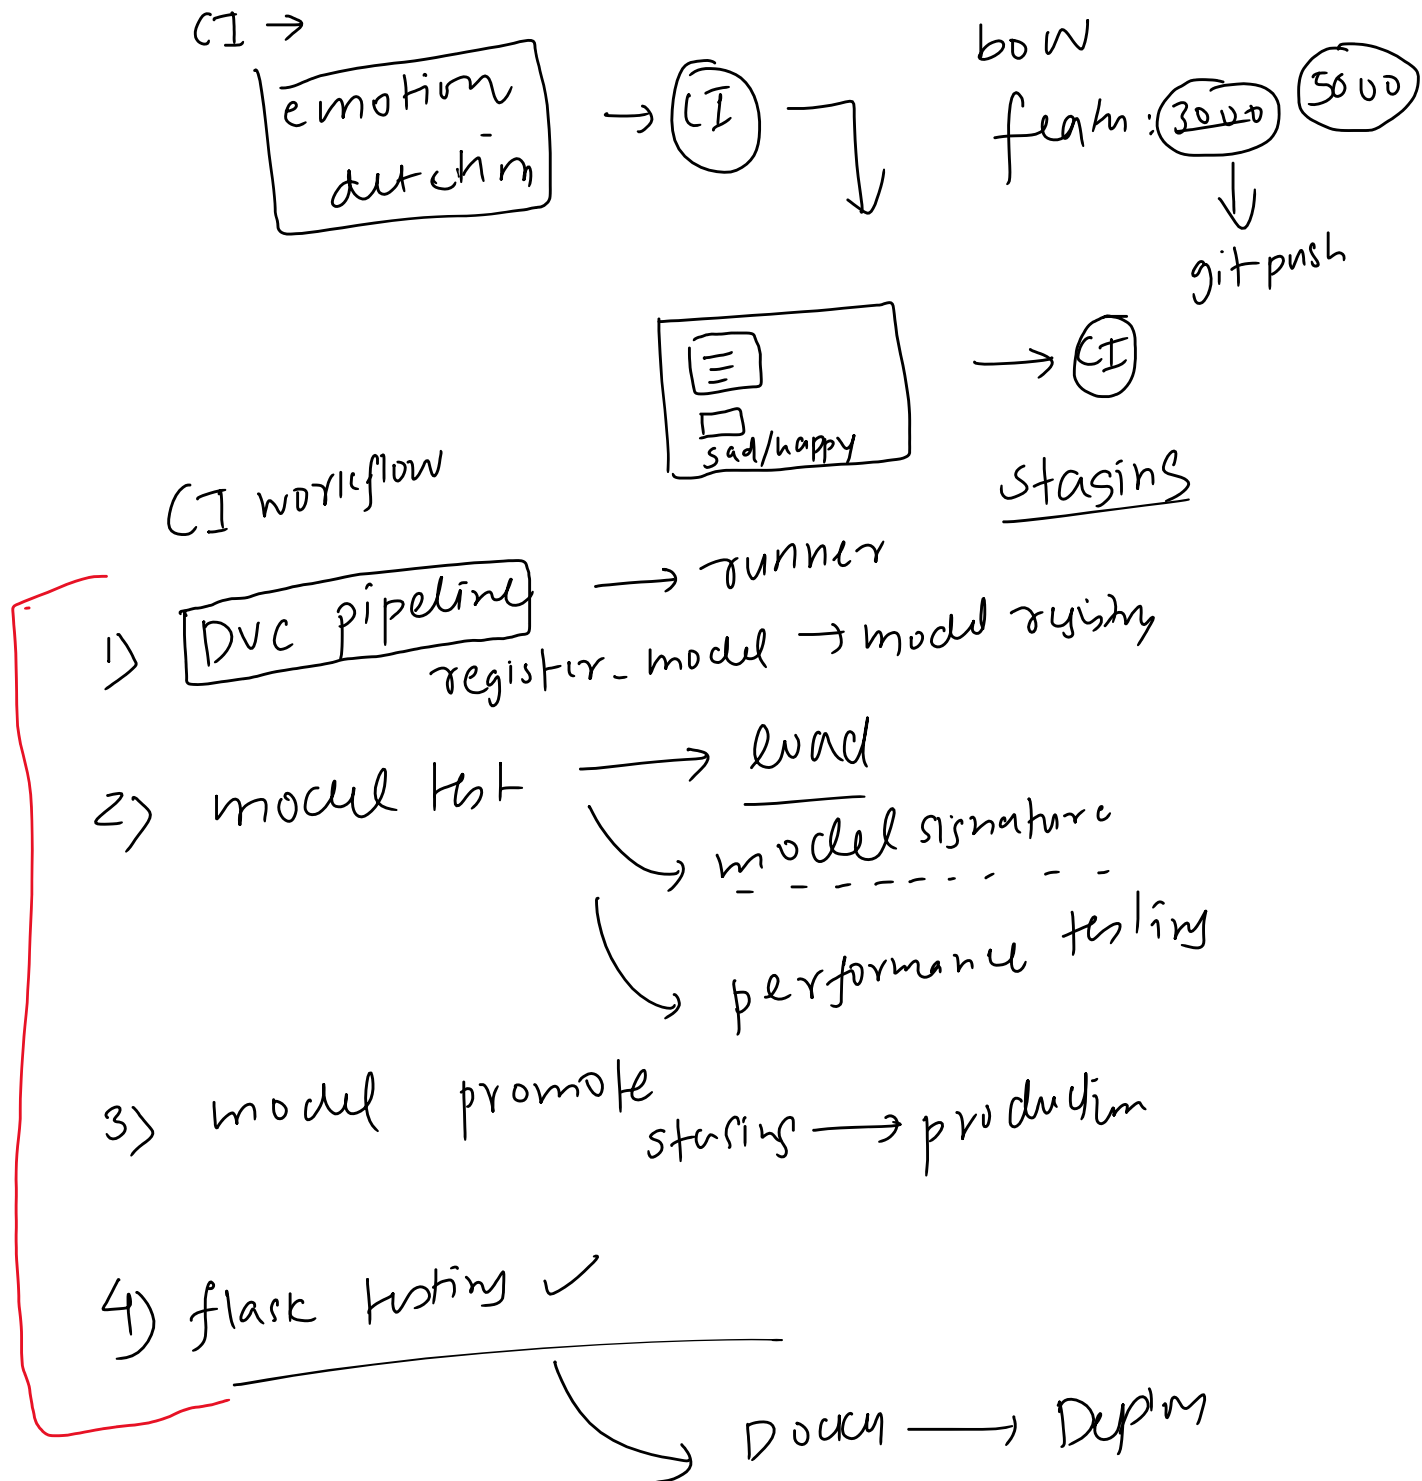 CI →
emotion
detection
→ CI
bow
featu : 3000 5000
git push
sad/happy
→ CI
staging
CI workflow
1) DVC pipeline → runner
register_model → model registry
2) model test → load
model signature
performance testing
3) model promote
staging → production
4) flask testing ✓
Docker → Deploy